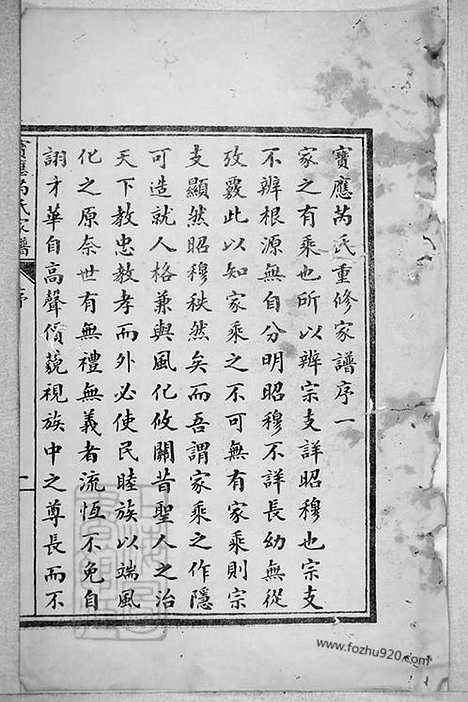 寶應芮氏重修家譜序一
家之有乘也所以辨宗支詳昭穆也宗支
不辨根源無自分明昭穆不詳長幼無從
攷覈此以知家乘之不可無有家乘則宗
支顯然昭穆秩然矣而吾謂家乘之作隱
可造就人格兼與風化攸關昔聖人之治
天下教忠教孝而外必使民睦族以端風
化之原奈世有無禮無義者流恆不免自
詡才華自高聲價藐視族中之尊長而不
寶應芮氏家譜 序 一
www.fozhu920.com